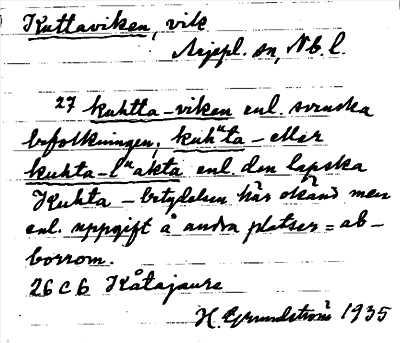 Kuttaviken, vik
Arjepl. sn, Nb. l.
27 kuhtta-viken enl. svenska
befolkningen; kuh"ta- eller
kuhta-l"akta enl. den lapska
Kuhta - betydelsen här okänd men
enl. uppgift å andra platser = ab-
borrom.
26 C 6 Kåtajaure
H. Grundström 1935